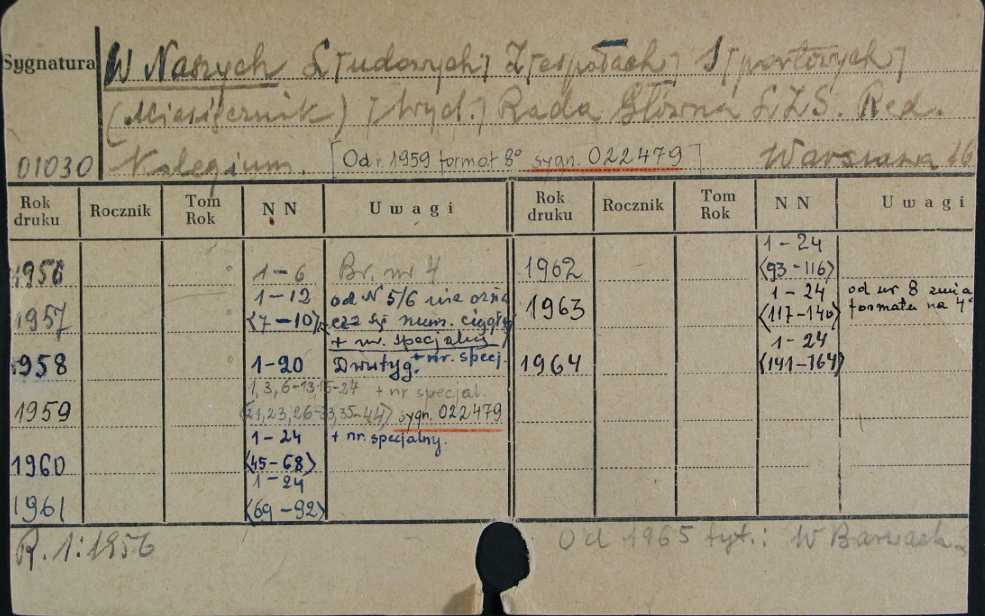 Sygnatura
W Naszych L[udowych] Z[espołach] S[portowych]
(Miesięcznik) [Wyd.] Rada Główna LZS. Red.
01030 Kolegium. [Od r. 1959 format 8° sygn. 022479] Warszawa
Rok druku Rocznik Tom Rok N N Uwagi Rok druku Rocznik Tom Rok N N Uwagi
1956 1-6 Br. nr 4
1957 1-12 <7-10> od N 5/6 nie ozna
cza się num. ciągłej
+ nr. specjalny
1958 1-20 Dwutyg. + nr. specj.
1959 1, 3, 6-13, 15-24 + nr specjal.
21, 23, 26-33, 35-44> sygn. 022479
1960 1-24 <45-68> + nr. specjalny.
1961 1-24 <69-92>
1962 1-24 <93-116>
1963 1-24 <117-140> od nr 8 zmia
formatu na 4°
1964 1-24 <141-164>
R. 1:1956
Od 1965 tyt.: W Barwach L